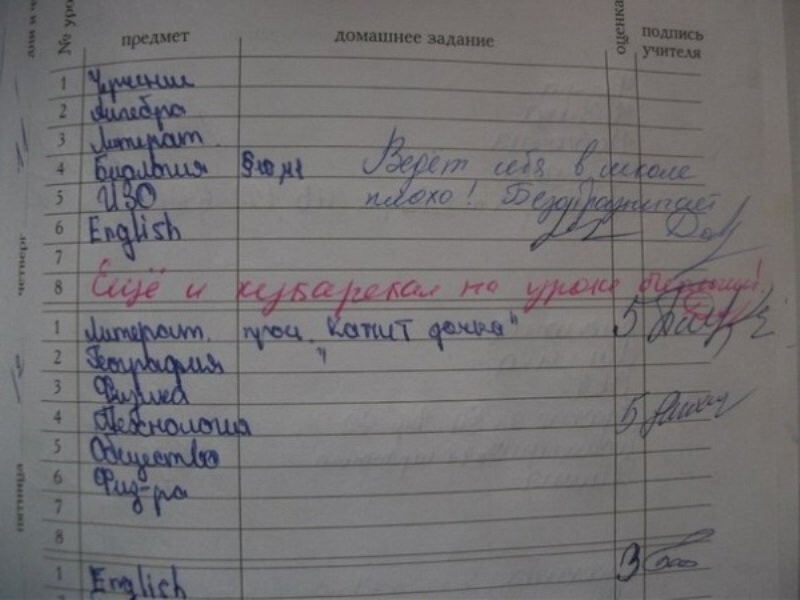 дни и ч
№ уро
предмет
домашнее задание
оценка
подпись учителя
четверг
1 Черчение
2 Алгебра
3 Литерат.
4 Биология §10 Ведёт себя в школе
5 ИЗО плохо! Безобразничает
6 English
7
8 Ещё и кукарекал на уроке
пятница
1 Литерат. проч. "Капит дочка" 5
2 География "
3 Физика
4 Технология 5
5 Общество
6 Физ-ра
7
8
1 English 3